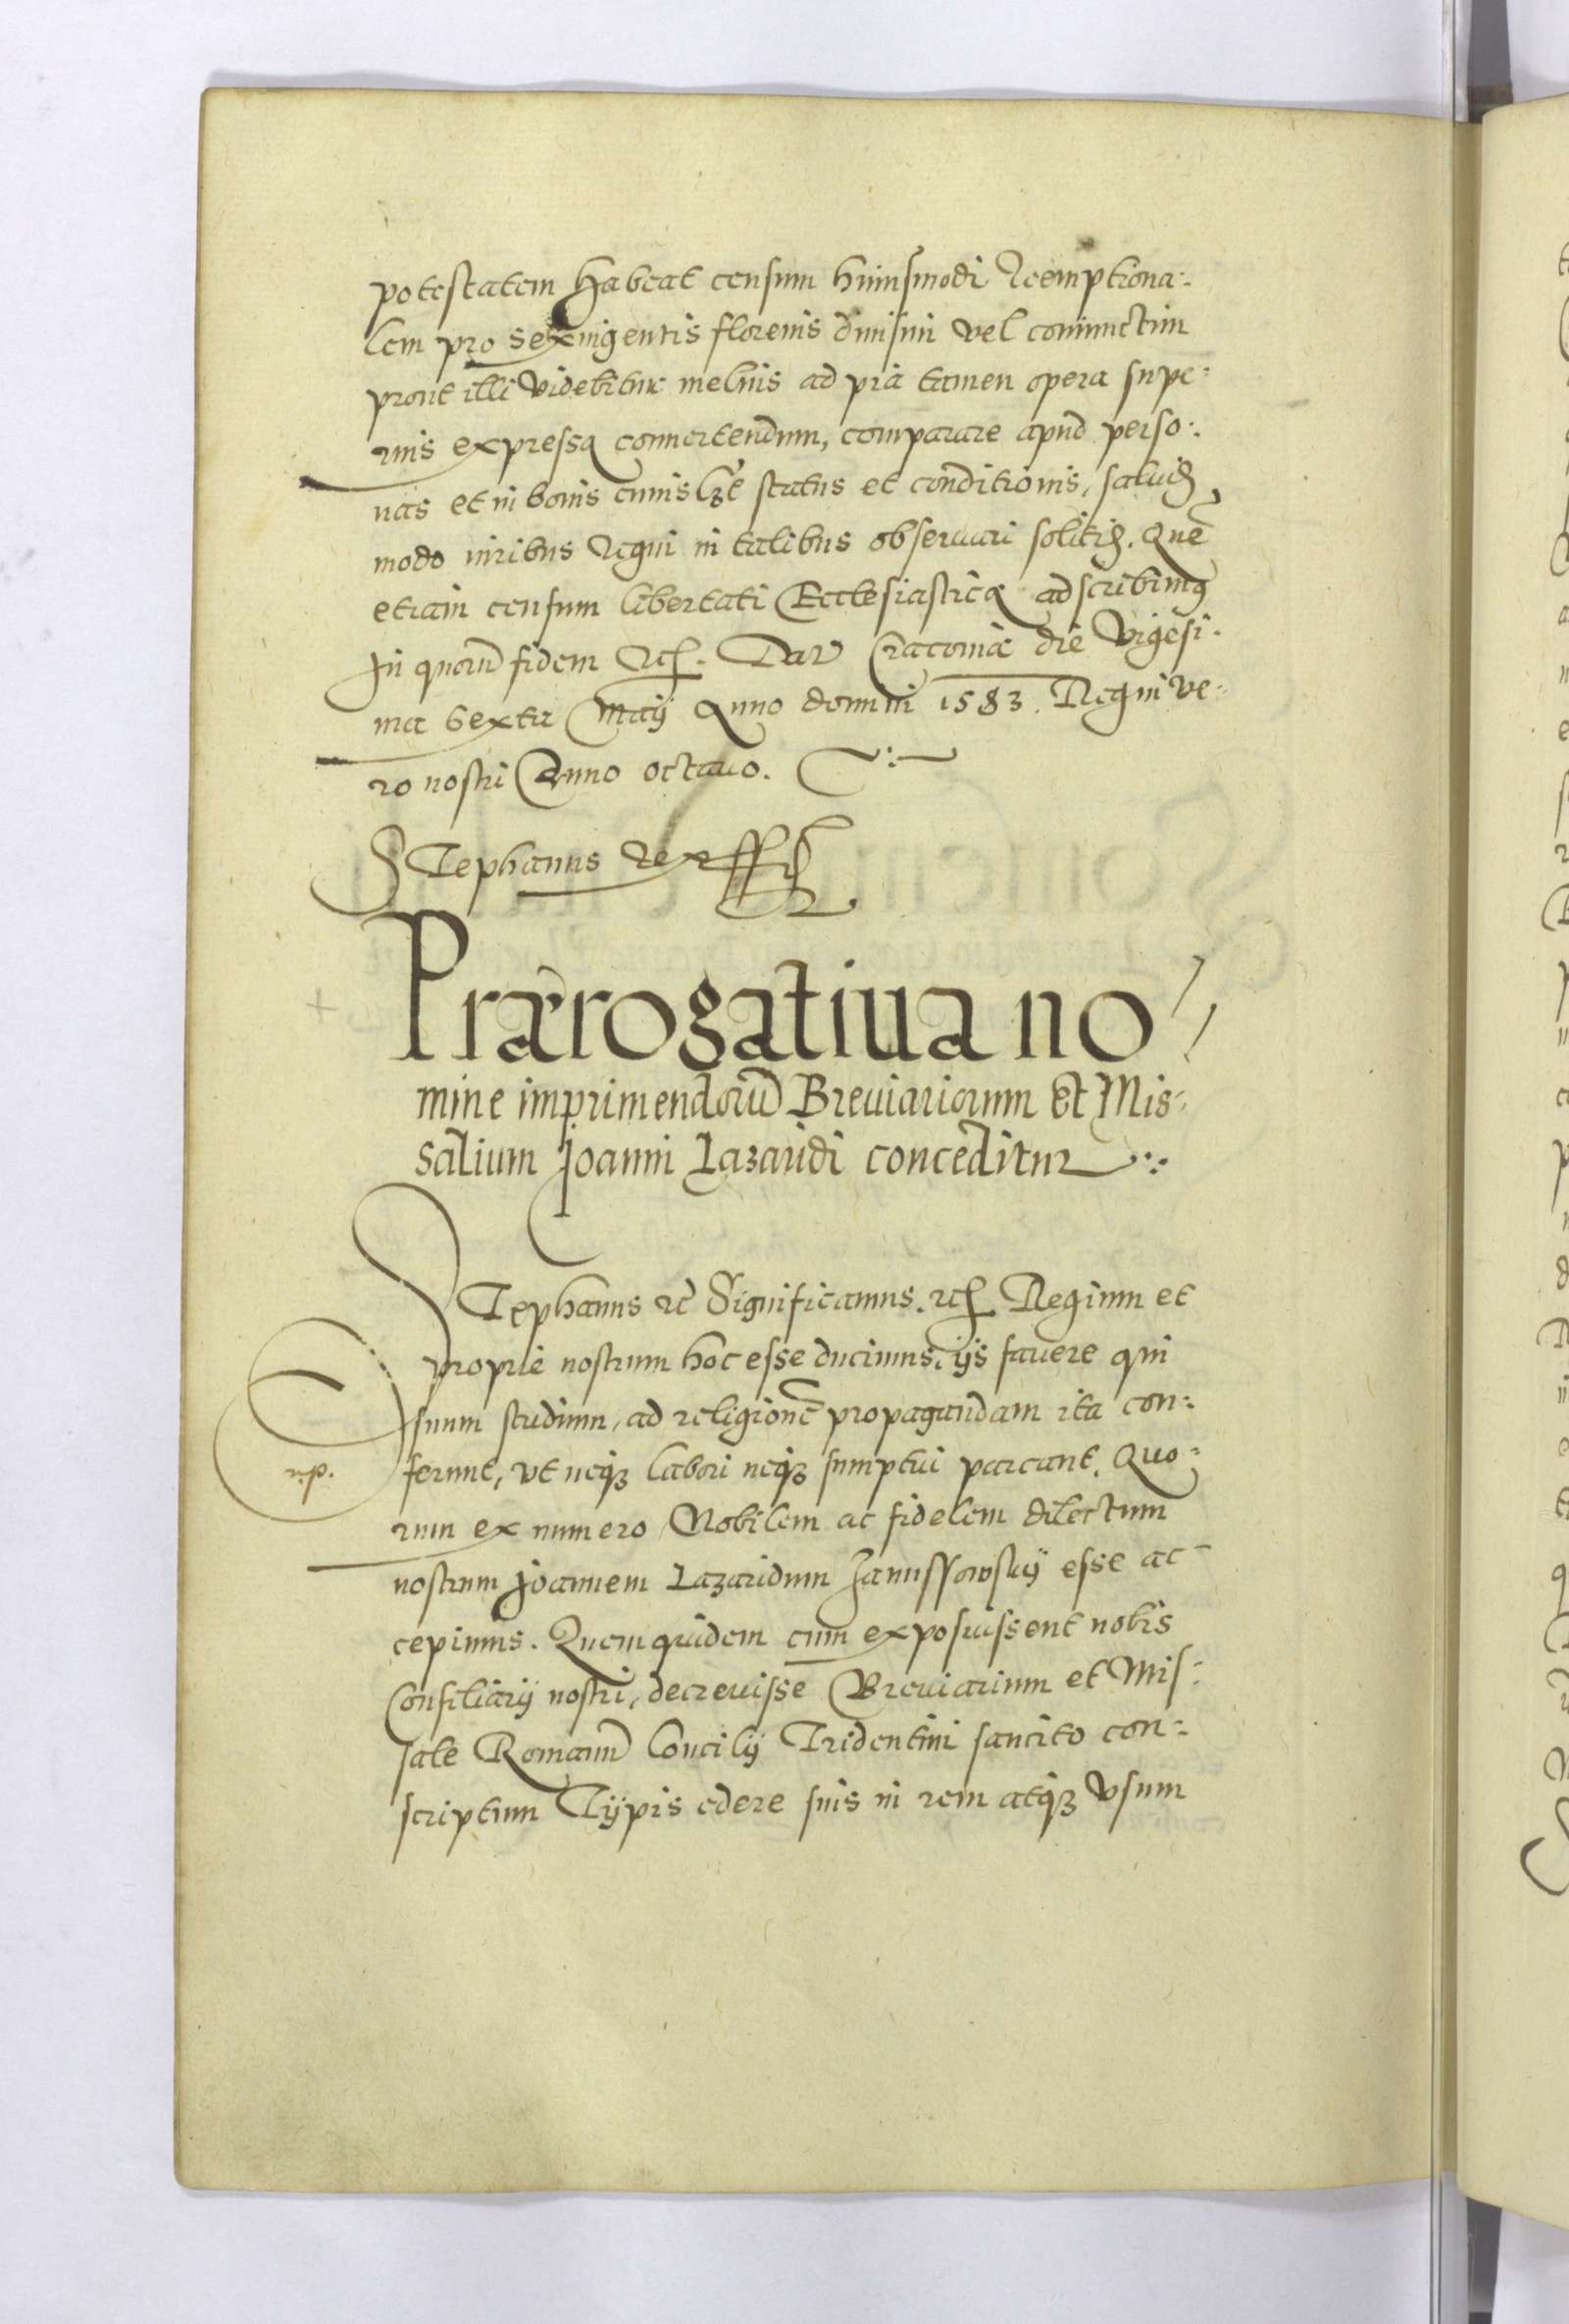 potestatem habeat censum huiusmodi Reemptiona:
lem pro sexingentis florenis diuisim vel coniunctim
prout illi videbitur melius ad pia tamen opera supe:
rius expressa conuertendum, comparare apud perso:
nas et in bonis cuiuslibet status et conditionis, saluis
modo iuribus Regni in talibus obseruari solitis. Quẽ
etiam censum libertati Ecclesiasticæ adscribimus
In quorũ fidem etc. Dat Cracouiæ die Vigesi:
ma sexta Maij Anno domini 1583. Regni ve:
ro nostri Anno octauo.
Stephanus Rex
Prærogatiua no
mine imprimendorũ Breuiariorum Et Mis:
salium Joanni Lazaridi conceditur
Stephanus etc Significamus. etc. Regium et
proprie nostrum hoc esse ducimus, ijs fauere qui
suum studium, ad religionẽ propagandam ita con:
r.p.
ferunt, vt neqȝ labori neqȝ sumptui parcant. Quo:
rum ex numero Nobilem ac fidelem dilectum
nostrum Joannem Lazaridum Janussowskij esse ac
cepimus. Quem quidem cum exposuissent nobis
Consiliarij nostri, decreuisse Breuiarium et Mis:
sale Romanũ Concilij Tridentini sancito con:
scriptum Typis edere suis in rem atqȝ vsum